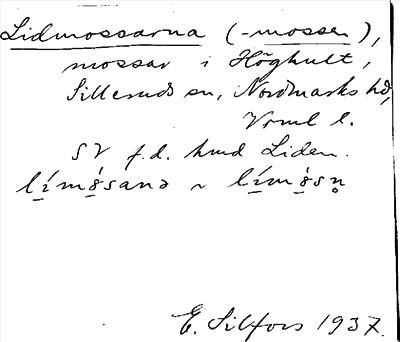 Lidmossarna (-mossen),
mossar i Höghult,
Silleruds sn, Nordmarks hd,
Vrml l.
SV f.d. hmd Liden.
E. Silfors 1937.